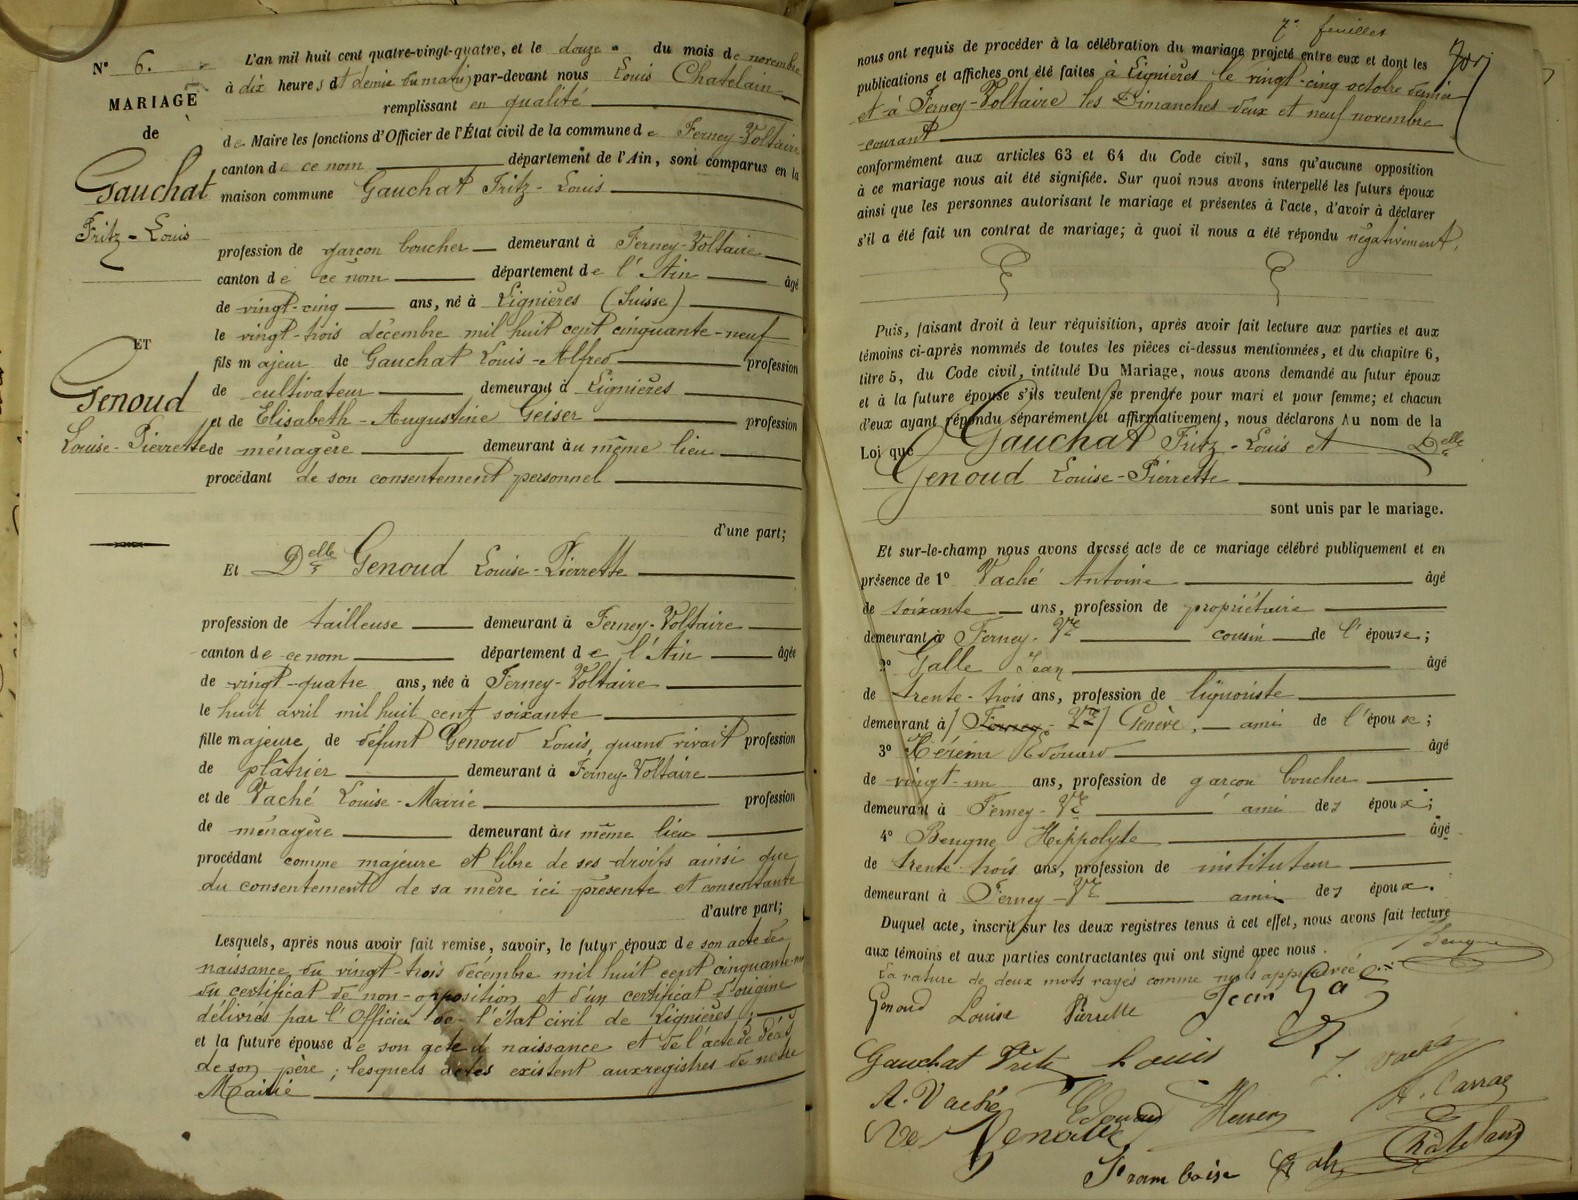 N° 6.
MARIAGE
de
Gauchat
Fritz-Louis
ET
Genoud
Louise-Pierrette
L'an mil huit cent quatre-vingt-quatre, et le douze du mois de novembre
à dix heures et demie du matin, par-devant nous Louis Chatelain
remplissant en qualité
de Maire les fonctions d'Officier de l'État civil de la commune de Ferney-Voltaire
canton de ce nom département de l'Ain, sont comparus en la
maison commune Gauchat Fritz-Louis
profession de garçon boucher demeurant à Ferney-Voltaire
canton de ce nom département de l'Ain âgé
de vingt-cinq ans, né à Lignières (Suisse)
le vingt-trois décembre mil huit cent cinquante-neuf
fils majeur de Gauchat Louis-Alfred profession
de cultivateur demeurant à Lignières
et de Elisabeth-Augustine Geiser profession
de ménagère demeurant au même lieu
procédant de son consentement personnel
d'une part;
Et Delle Genoud Louise-Pierrette
profession de tailleuse demeurant à Ferney-Voltaire
canton de ce nom département de l'Ain âgée
de vingt-quatre ans, née à Ferney-Voltaire
le huit avril mil huit cent soixante
fille majeure de défunt Genoud Louis, quand vivait profession
de plâtrier demeurant à Ferney-Voltaire
et de Vaché Louise-Marie profession
de ménagère demeurant au même lieu
procédant comme majeure et libre de ses droits ainsi que
du consentement de sa mère ici présente et consentante
d'autre part;
Lesquels, après nous avoir fait remise, savoir, le futur époux de son acte de
naissance du vingt-trois décembre mil huit cent cinquante-neuf
du certificat de non-opposition et d'un certificat d'origine
délivrés par l'Officier de l'état civil de Lignières;
et la future épouse de son acte de naissance et de l'acte de décès
de son père; lesquels actes existent aux registres de notre
Mairie
7e feuillet
nous ont requis de procéder à la célébration du mariage projeté entre eux et dont les
publications et affiches ont été faites à Lignières le vingt-cinq octobre dernier
et à Ferney-Voltaire les Dimanches deux et neuf novembre
courant
conformément aux articles 63 et 64 du Code civil, sans qu'aucune opposition
à ce mariage nous ait été signifiée. Sur quoi nous avons interpellé les futurs époux
ainsi que les personnes autorisant le mariage et présentes à l'acte, d'avoir à déclarer
s'il a été fait un contrat de mariage; à quoi il nous a été répondu négativement.
Puis, faisant droit à leur réquisition, après avoir fait lecture aux parties et aux
témoins ci-après nommés de toutes les pièces ci-dessus mentionnées, et du chapitre 6,
titre 5, du Code civil, intitulé Du Mariage, nous avons demandé au futur époux
et à la future épouse s'ils veulent se prendre pour mari et pour femme; et chacun
d'eux ayant répondu séparément et affirmativement, nous déclarons Au nom de la
Loi que Gauchat Fritz-Louis et Delle
Genoud Louise-Pierrette
sont unis par le mariage.
Et sur-le-champ nous avons dressé acte de ce mariage célébré publiquement et en
présence de 1° Vaché Antoine âgé
de soixante ans, profession de propriétaire
demeurant à Ferney-Vre cousin de l'épouse;
2° Galle Jean âgé
de trente-trois ans, profession de liquoriste
demeurant à Ferney-Vre Genève, ami de l'épouse;
3° Edouard âgé
de vingt-un ans, profession de garçon boucher
demeurant à Ferney-Vre ami des époux;
4° Beugne Hippolyte âgé
de trente-trois ans, profession de instituteur
demeurant à Ferney-Vre ami des époux.
Duquel acte, inscrit sur les deux registres tenus à cet effet, nous avons fait lecture
aux témoins et aux parties contractantes qui ont signé avec nous. Beugne
La rature de deux mots rayés comme nuls approuvée
Genoud Louise Pierrette Jean Gal
Gauchat Fritz Louis
A. Vaché Edouard
Ve Genoud Chatelain
Framboise